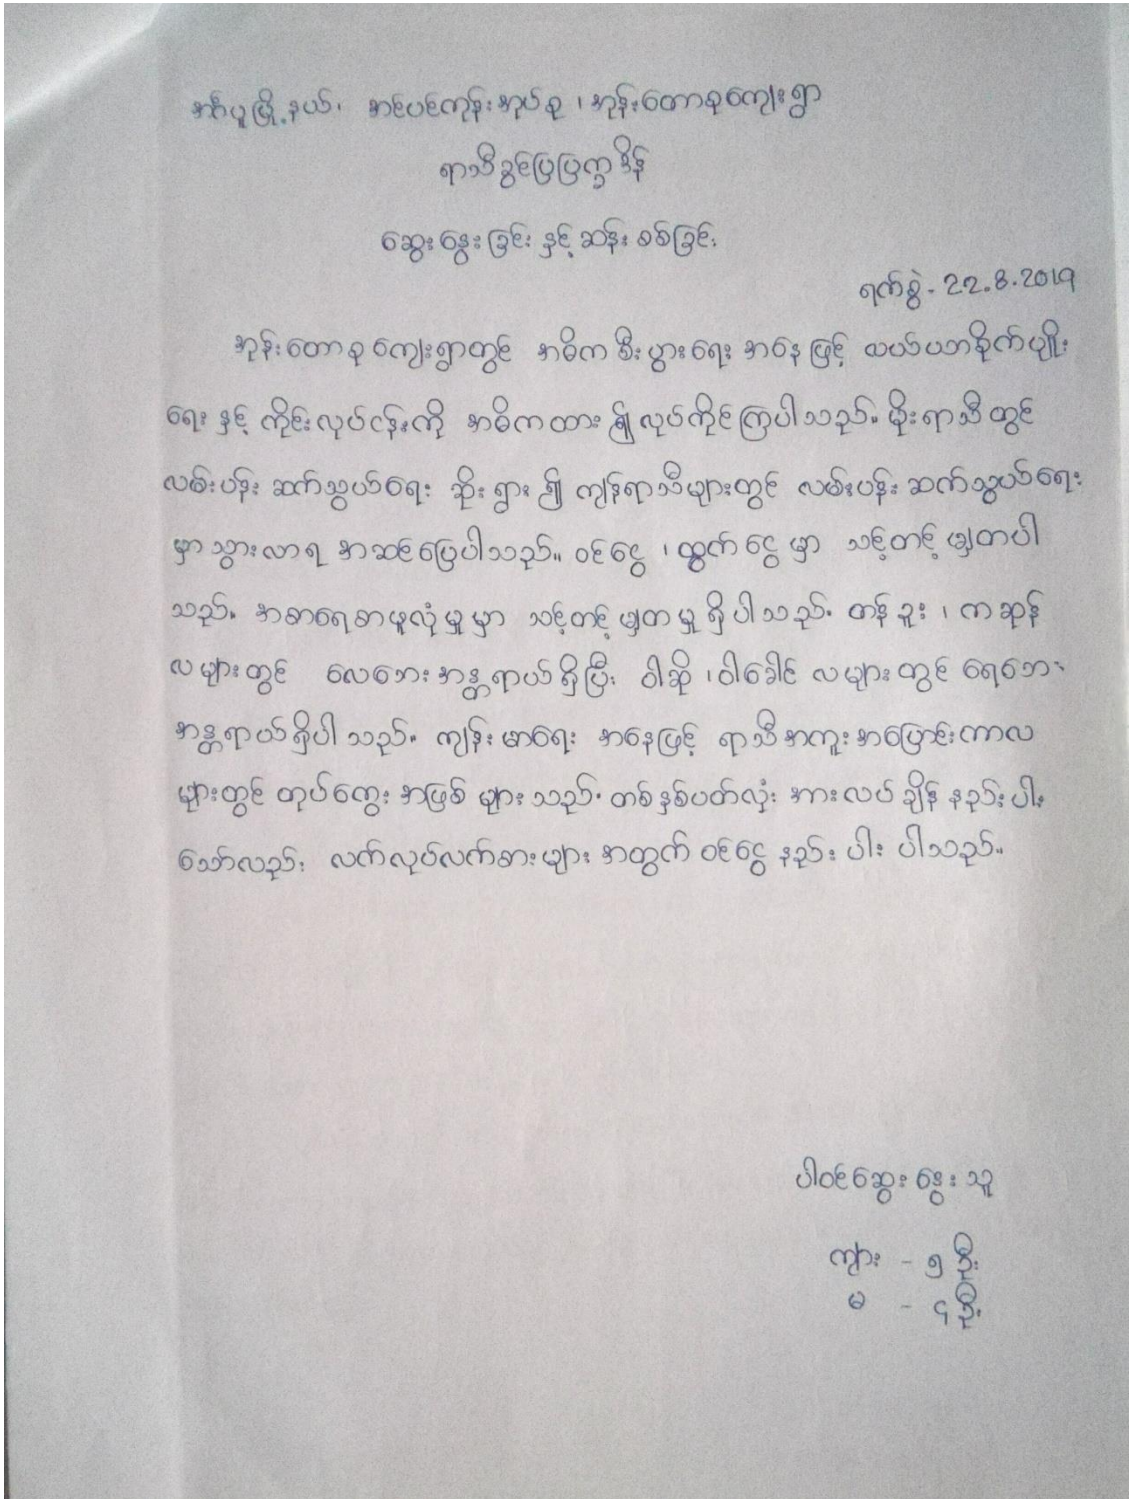 အင်္ဂပူမြို့နယ်၊ အင်ပင်ကုန်းအုပ်စု ၊ အုန်းတောစုကျေးရွာ
ရာသီခွင်ပြပြက္ခဒိန်
ဆွေးနွေးခြင်း နှင့် ဆန်းစစ်ခြင်း
ရက်စွဲ - 22.8.2019
အုန်းတောစုကျေးရွာတွင် အဓိကစီးပွားရေး အနေဖြင့် ထယ်ပဘစိုက်ပျိုး
ရေး နှင့် ကိုင်းလုပ်ငန်းကို အဓိကထား၍ လုပ်ကိုင်ကြပါသည်။ မိုးရာသီတွင်
လမ်းပန်း ဆက်သွယ်ရေး ဆိုးရွား၍ ကျန်ရာသီများတွင် လမ်းပန်း ဆက်သွယ်ရေး
မှာ သွားလာရ အဆင်ပြေပါသည်။ ဝင်ငွေ ၊ ထွက်ငွေ မှာ သင့်တင့် မျှတပါ
သည်။ အစာရေစာဖူလုံမှုမှာ သင့်တင့် မျှတမှု ရှိပါသည်။ တန်ခူး ၊ ကဆုန်
လများတွင် လေဘေးအန္တရာယ်ရှိပြီး ဝါဆို ၊ ဝါခေါင် လများတွင် ရေဘေး
အန္တရာယ်ရှိပါသည်။ ကျန်းမာရေး အနေဖြင့် ရာသီအကူးအပြောင်းကာလ
များတွင် တုပ်ကွေး အဖြစ် များသည်။ တစ်နှစ်ပတ်လုံး အားလပ်ချိန် နည်းပါး
သော်လည်း လက်လုပ်လက်စားများ အတွက် ဝင်ငွေ နည်းပါး ပါသည်။
ပါဝင်ဆွေးနွေးသူ
ကျား - ၅ ဦး
မ - ၄ ဦး